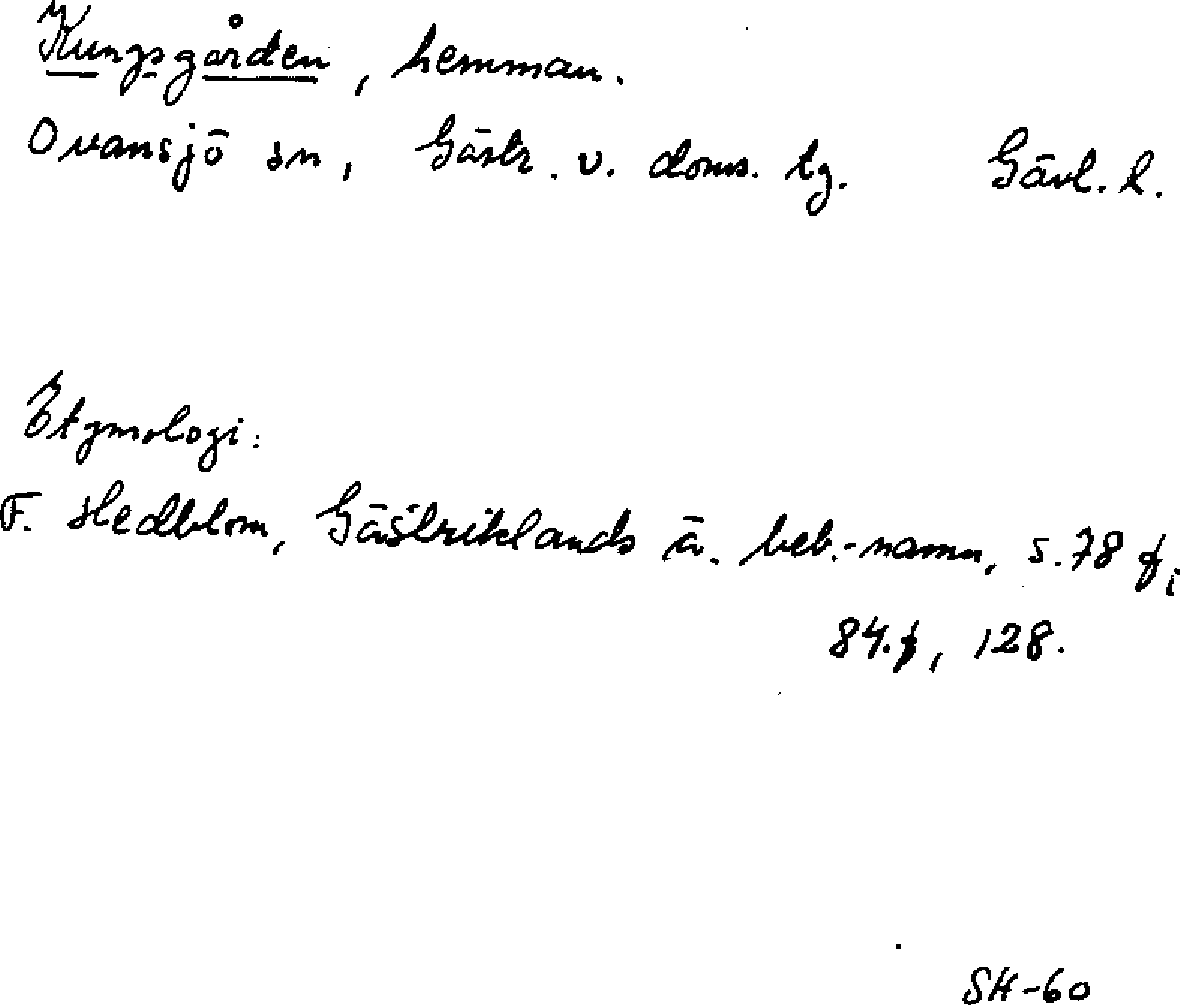 Kungsgården, hemman.
Ovansjö sn, Gästr. v. doms. tg. Gävl. l.
Etymologi:
F. Hedblom, Gästriklands ä. beb.-namn, s. 78 f,
84.f, 128.
SH-60